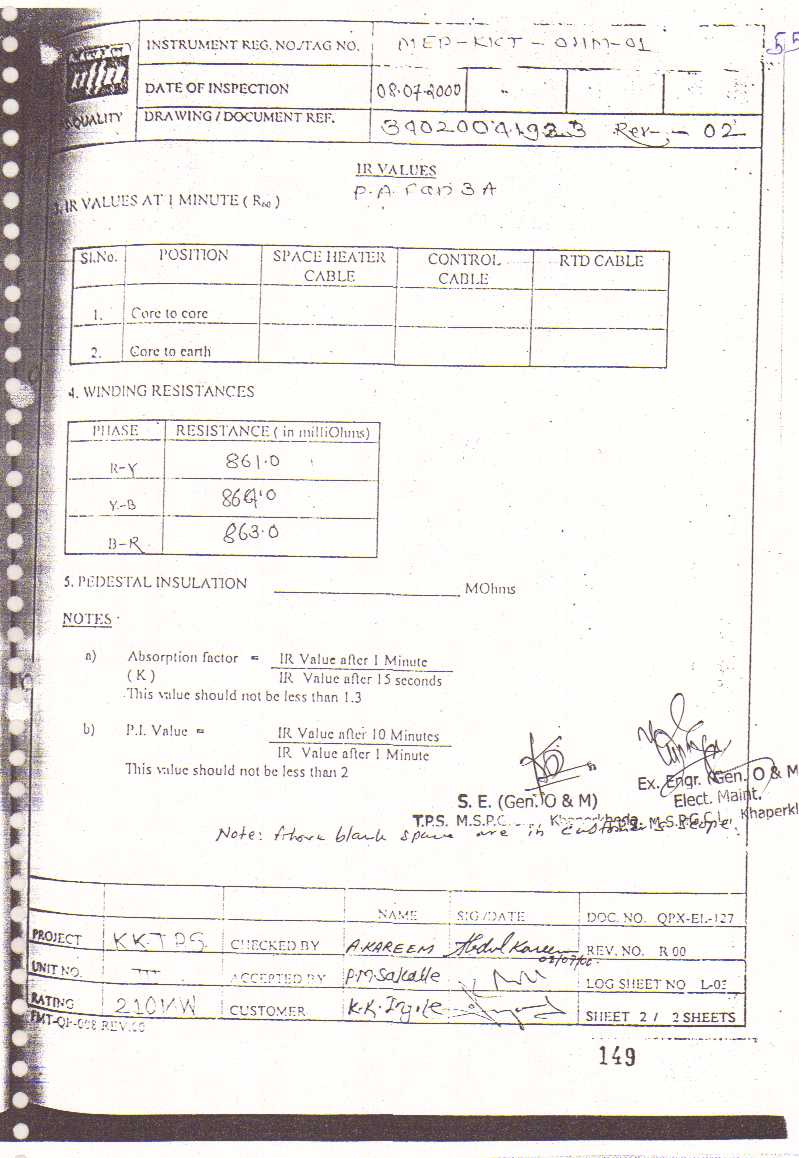 INSTRUMENT REG. NO./TAG NO.
DATE OF INSPECTION 08.07.2000
QUALITY DRAWING / DOCUMENT REF. Rev - 02
IR VALUES
P.A. Fan 3A
3. IR VALUES AT 1 MINUTE ( R60 )
Sl.No. POSITION SPACE HEATER CABLE CONTROL CABLE RTD CABLE
1. Core to core
2. Core to earth
4. WINDING RESISTANCES
PHASE RESISTANCE ( in milliOhms)
R-Y 861.0
Y-B 864.0
B-R 863.0
5. PEDESTAL INSULATION MOhms
NOTES
a) Absorption factor = IR Value after 1 Minute
( K ) IR Value after 15 seconds
This value should not be less than 1.3
b) P.I. Value = IR Value after 10 Minutes
IR Value after 1 Minute
This value should not be less than 2
S. E. (Gen. O & M)
T.P.S. M.S.P.G.
Ex. Engr. (Gen. O & M
Elect. Maint.
M.S.P.G.C.L. Khaperkh
Note: Above blank space are in customer's scope.
NAME SIG /DATE DOC. NO. QPX-EL-127
PROJECT KKTPS CHECKED BY A.KAREEM Abdul Kareem REV. NO. R 00
UNIT NO. III ACCEPTED BY P.M.Sakalle LOG SHEET NO L-03
RATING 210MW CUSTOMER K.K. Ingole SHEET 2 / 2 SHEETS
FMT-QP-008 REV.00
149